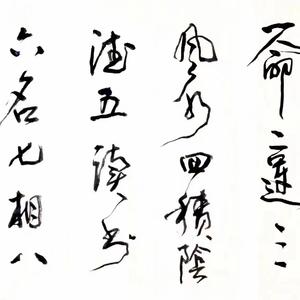 一命二運三
風水四積陰
德五讀書
六名七相八